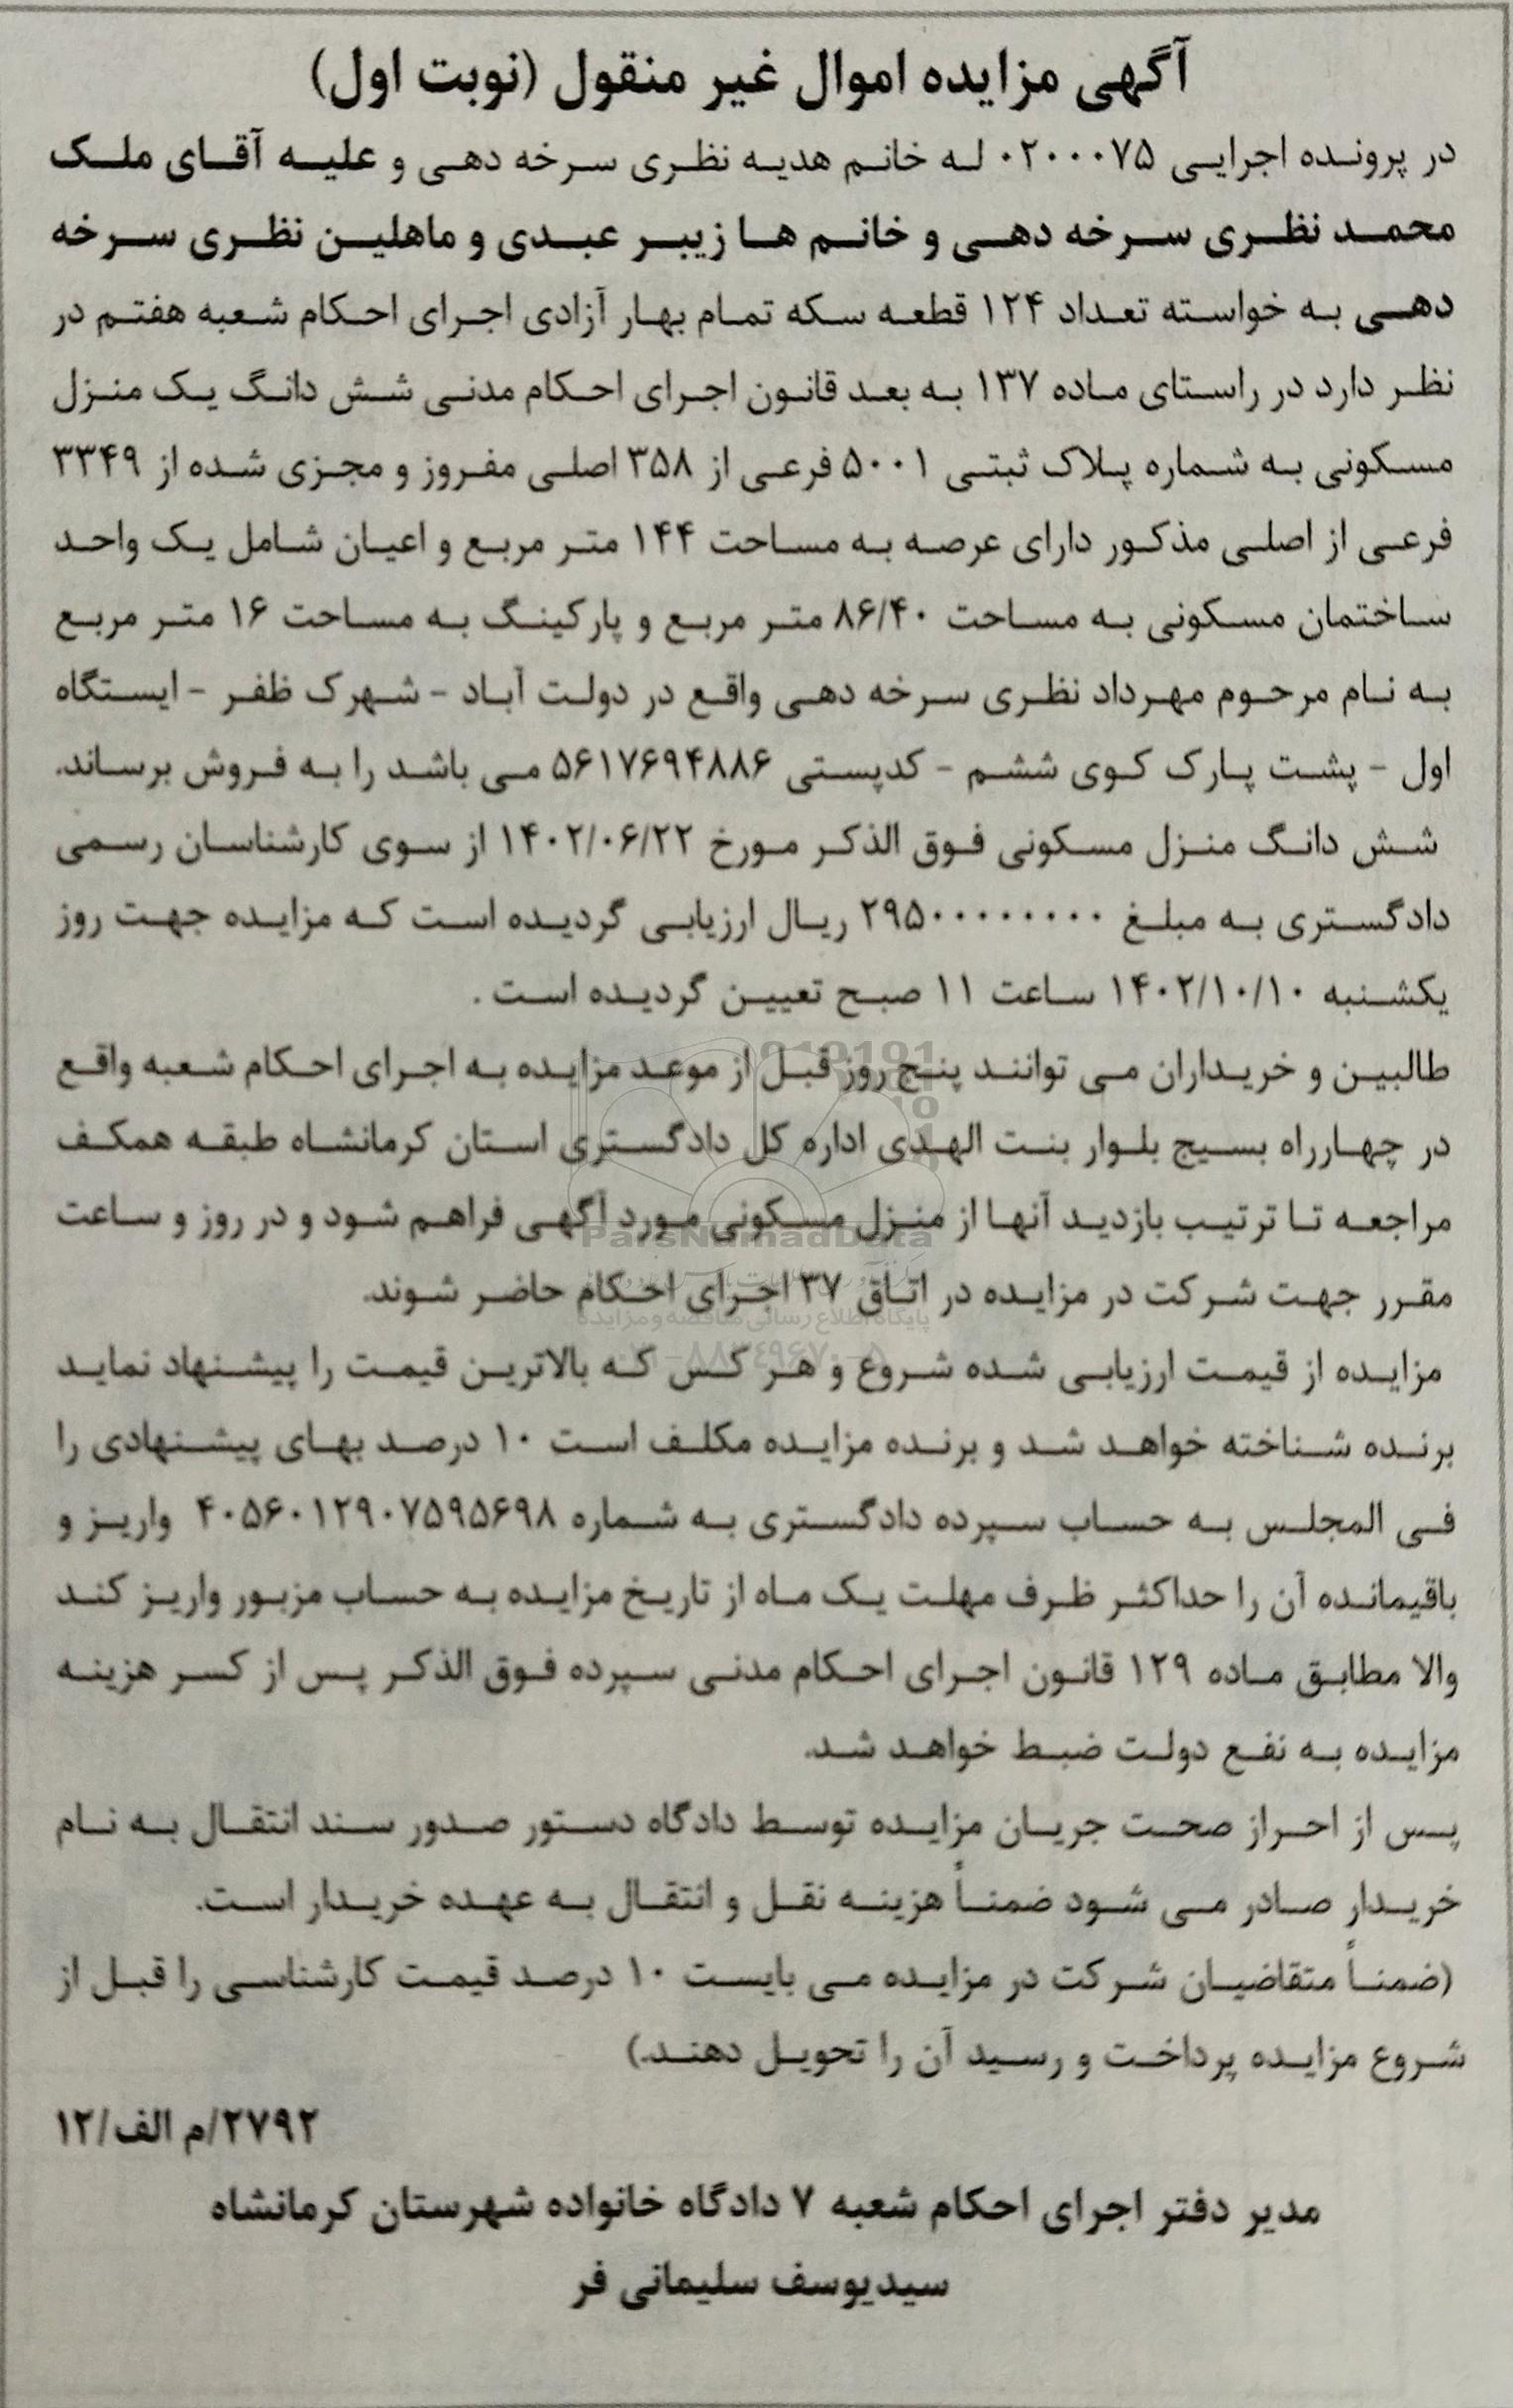 آگهی مزایده اموال غیر منقول (نوبت اول)
در پرونده اجرایی ۰۲۰۰۰۷۵ له خانم هدیه نظری سرخه دهی و علیه آقای ملک
محمد نظری سرخه دهی و خانم ها زیبر عبدی و ماهلین نظری سرخه
دهی به خواسته تعداد ۱۲۴ قطعه سکه تمام بهار آزادی اجرای احکام شعبه هفتم در
نظر دارد در راستای ماده ۱۳۷ به بعد قانون اجرای احکام مدنی شش دانگ یک منزل
مسکونی به شماره پلاک ثبتی ۵۰۰۱ فرعی از ۳۵۸ اصلی مفروز و مجزی شده از ۳۳۴۹
فرعی از اصلی مذکور دارای عرصه به مساحت ۱۴۴ متر مربع و اعیان شامل یک واحد
ساختمان مسکونی به مساحت ۸۶/۴۰ متر مربع و پارکینگ به مساحت ۱۶ متر مربع
به نام مرحوم مهرداد نظری سرخه دهی واقع در دولت آباد - شهرک ظفر - ایستگاه
اول - پشت پارک کوی ششم - کدپستی ۵۶۱۷۶۹۴۸۸۶ می باشد را به فروش برساند.
شش دانگ منزل مسکونی فوق الذکر مورخ ۱۴۰۲/۰۶/۲۲ از سوی کارشناسان رسمی
دادگستری به مبلغ ۲۹۵۰۰۰۰۰۰۰۰ ریال ارزیابی گردیده است که مزایده جهت روز
یکشنبه ۱۴۰۲/۱۰/۱۰ ساعت ۱۱ صبح تعیین گردیده است .
طالبین و خریداران می توانند پنج روز قبل از موعد مزایده به اجرای احکام شعبه واقع
در چهارراه بسیج بلوار بنت الهدی اداره کل دادگستری استان کرمانشاه طبقه همکف
مراجعه تا ترتیب بازدید آنها از منزل مسکونی مورد آگهی فراهم شود و در روز و ساعت
ParsNamadData
مقرر جهت شرکت در مزایده در اتاق ۳۷ اجرای احکام حاضر شوند.
پایگاه اطلاع رسانی مناقصه و مزایده
مزایده از قیمت ارزیابی شده شروع و هر کس که بالاترین قیمت را پیشنهاد نماید
برنده شناخته خواهد شد و برنده مزایده مکلف است ۱۰ درصد بهای پیشنهادی را
فی المجلس به حساب سپرده دادگستری به شماره ۴۰۵۶۰۱۲۹۰۷۵۹۵۶۹۸ واریز و
باقیمانده آن را حداکثر ظرف مهلت یک ماه از تاریخ مزایده به حساب مزبور واریز کند
والا مطابق ماده ۱۲۹ قانون اجرای احکام مدنی سپرده فوق الذکر پس از کسر هزینه
مزایده به نفع دولت ضبط خواهد شد.
پس از احراز صحت جریان مزایده توسط دادگاه دستور صدور سند انتقال به نام
خریدار صادر می شود ضمناً هزینه نقل و انتقال به عهده خریدار است.
(ضمناً متقاضیان شرکت در مزایده می بایست ۱۰ درصد قیمت کارشناسی را قبل از
شروع مزایده پرداخت و رسید آن را تحویل دهند.)
۲۷۹۲/م الف/۱۲
مدیر دفتر اجرای احکام شعبه ۷ دادگاه خانواده شهرستان کرمانشاه
سیدیوسف سلیمانی فر